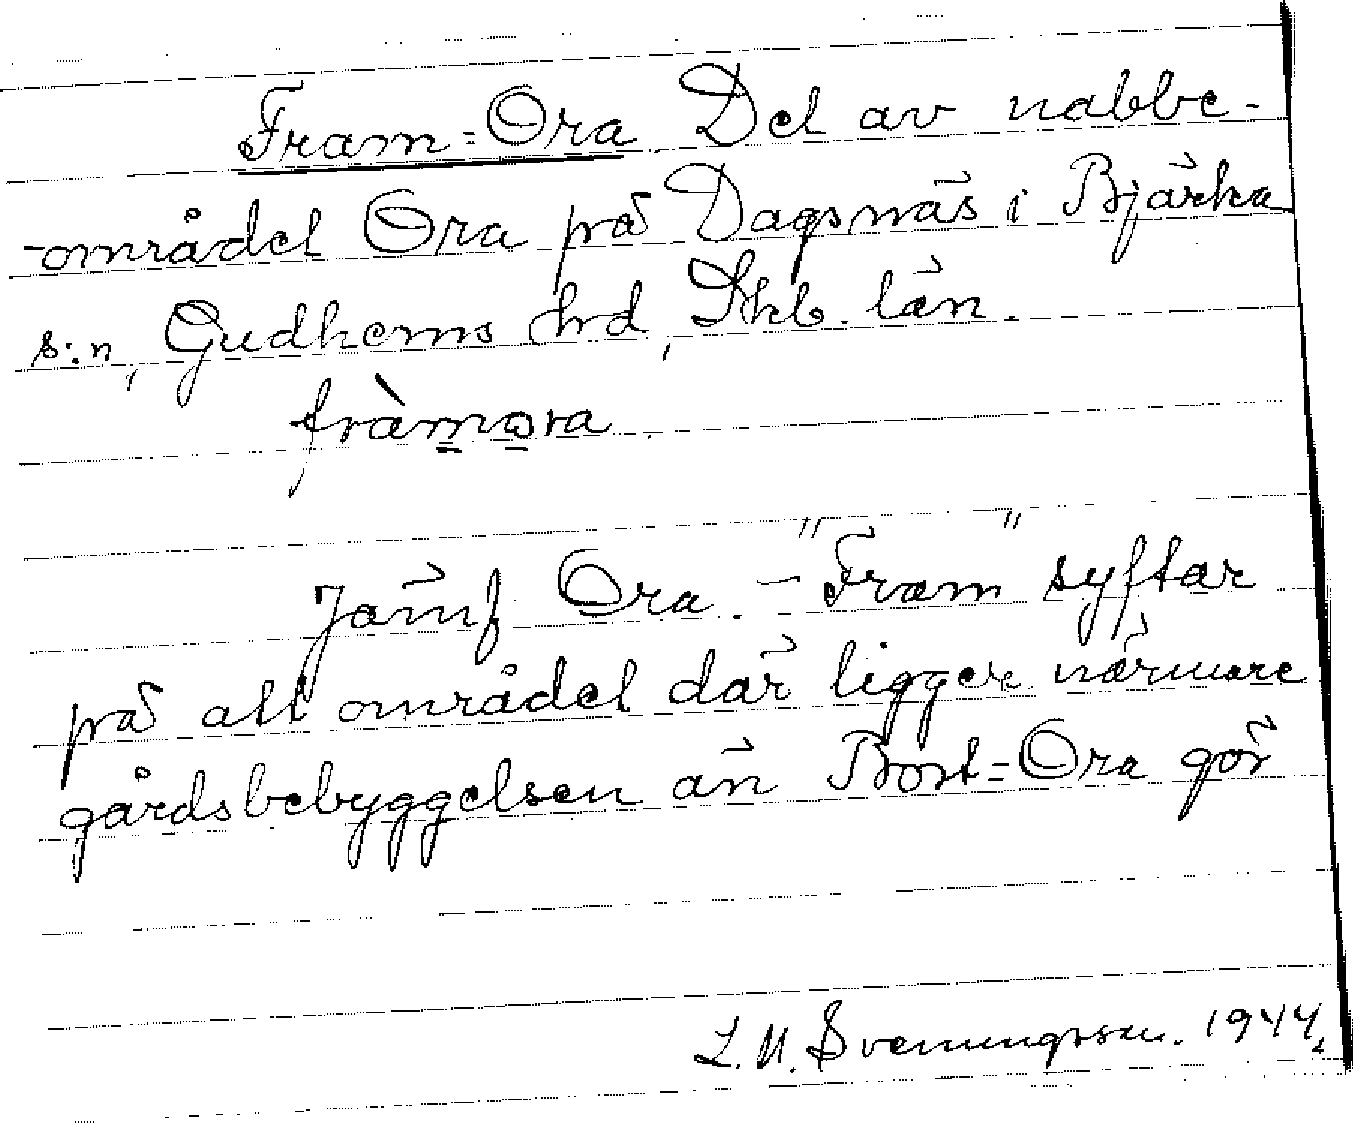 Fram-Ora. Del av nabbe-
-området Ora på Dagsnäs i Bjärka
s:n, Gudhems hrd, Skb. län.
fràmora
Jämf Ora. - "Fram" syftar
på att området där ligger närmare
gårdsbebyggelsen än Bort-Ora gör
L.M. Svenungsson. 1944.